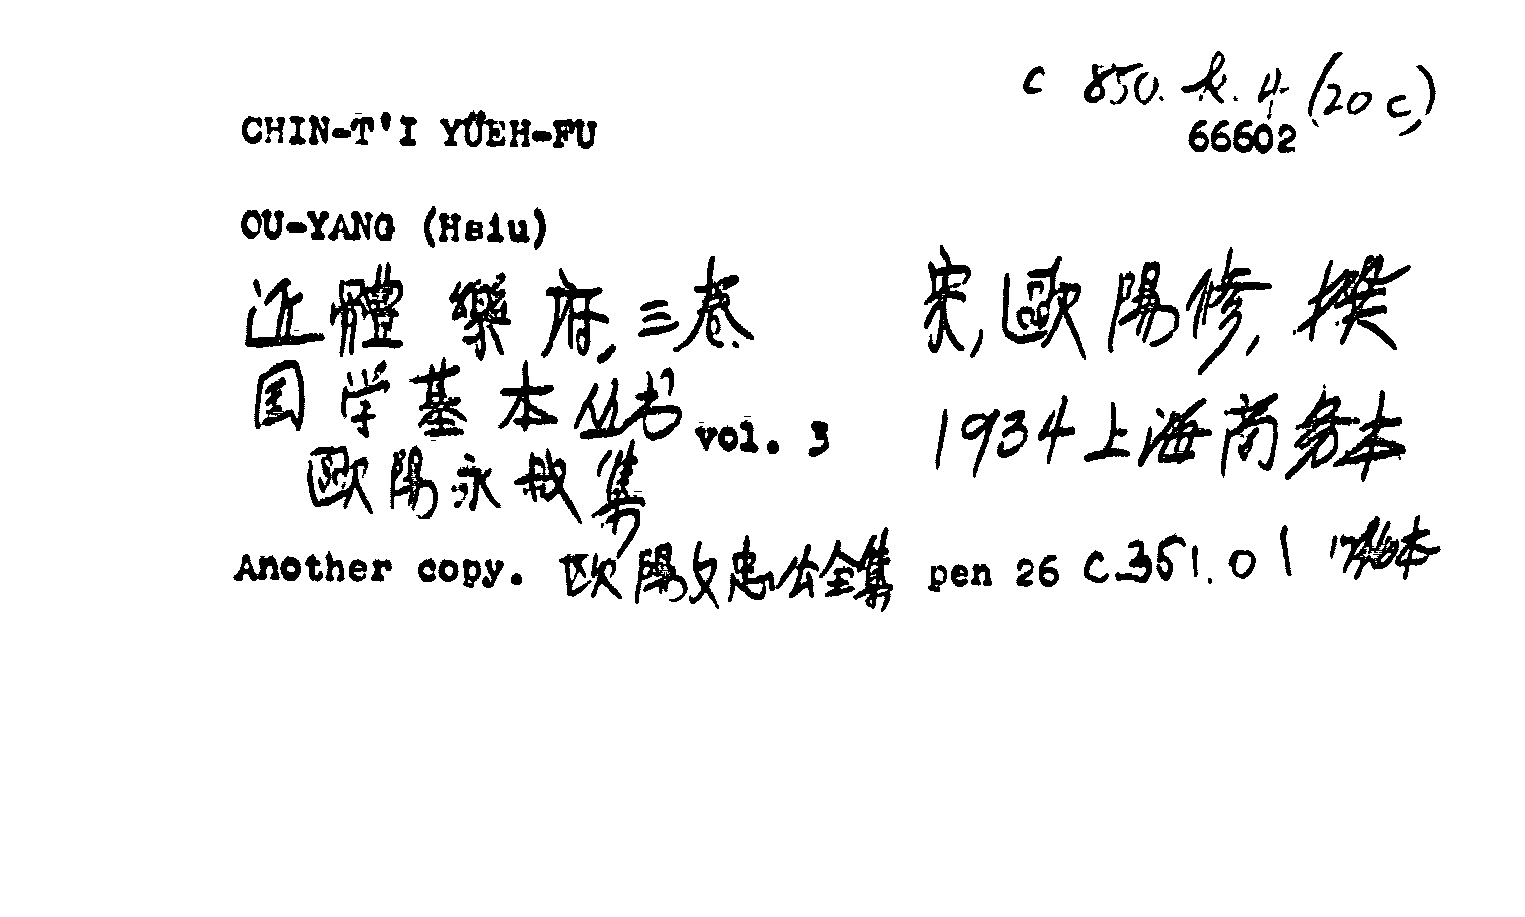 C 850. k. 4 (20 c)
66602
CHIN-T'I YÜEH-FU
OU-YANG (Hsiu)
近體樂府, 三卷 宋, 歐陽修, 撰
国学基本丛书 vol. 3 1934 上海商务本
歐陽永叔集
Another copy. 欧陽文忠公全集 pen 26 C.351.01 1746本